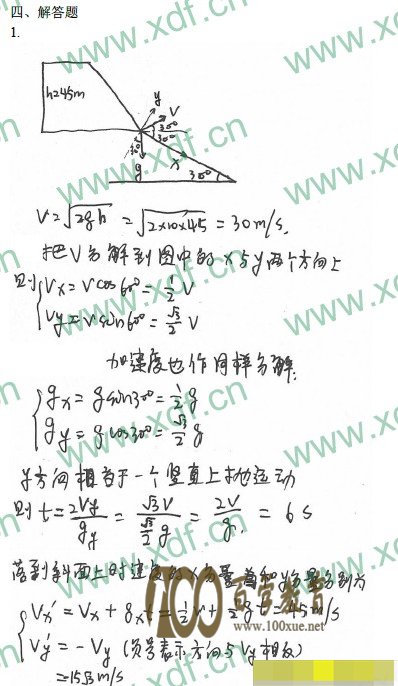 四、解答题
1.
h=45m
y
V
30°
30°
30°
g
x
30°
V=√2gh =√2×10×45 =30m/s.
把V分解到图中的x与y两个方向上
则{Vx=vcos60°=1/2 V
Vy=vsin60°=√3/2 V
加速度也作同样分解:
{gx=gsin30°=1/2 g
gy=gcos30°=√3/2 g
y方向相当于一个竖直上抛运动
则 t=2Vy/gy = √3V/(√3/2 g) = 2V/g = 6s
落到斜面上时速度的x分量和y分量分别为
{Vx'=Vx+gxt=1/2 V+1/2 gt=45m/s
Vy'=-Vy (负号表示方向与Vy相反)
=15√3m/s
www.xdf.cn
百官教育
www.100xue.net